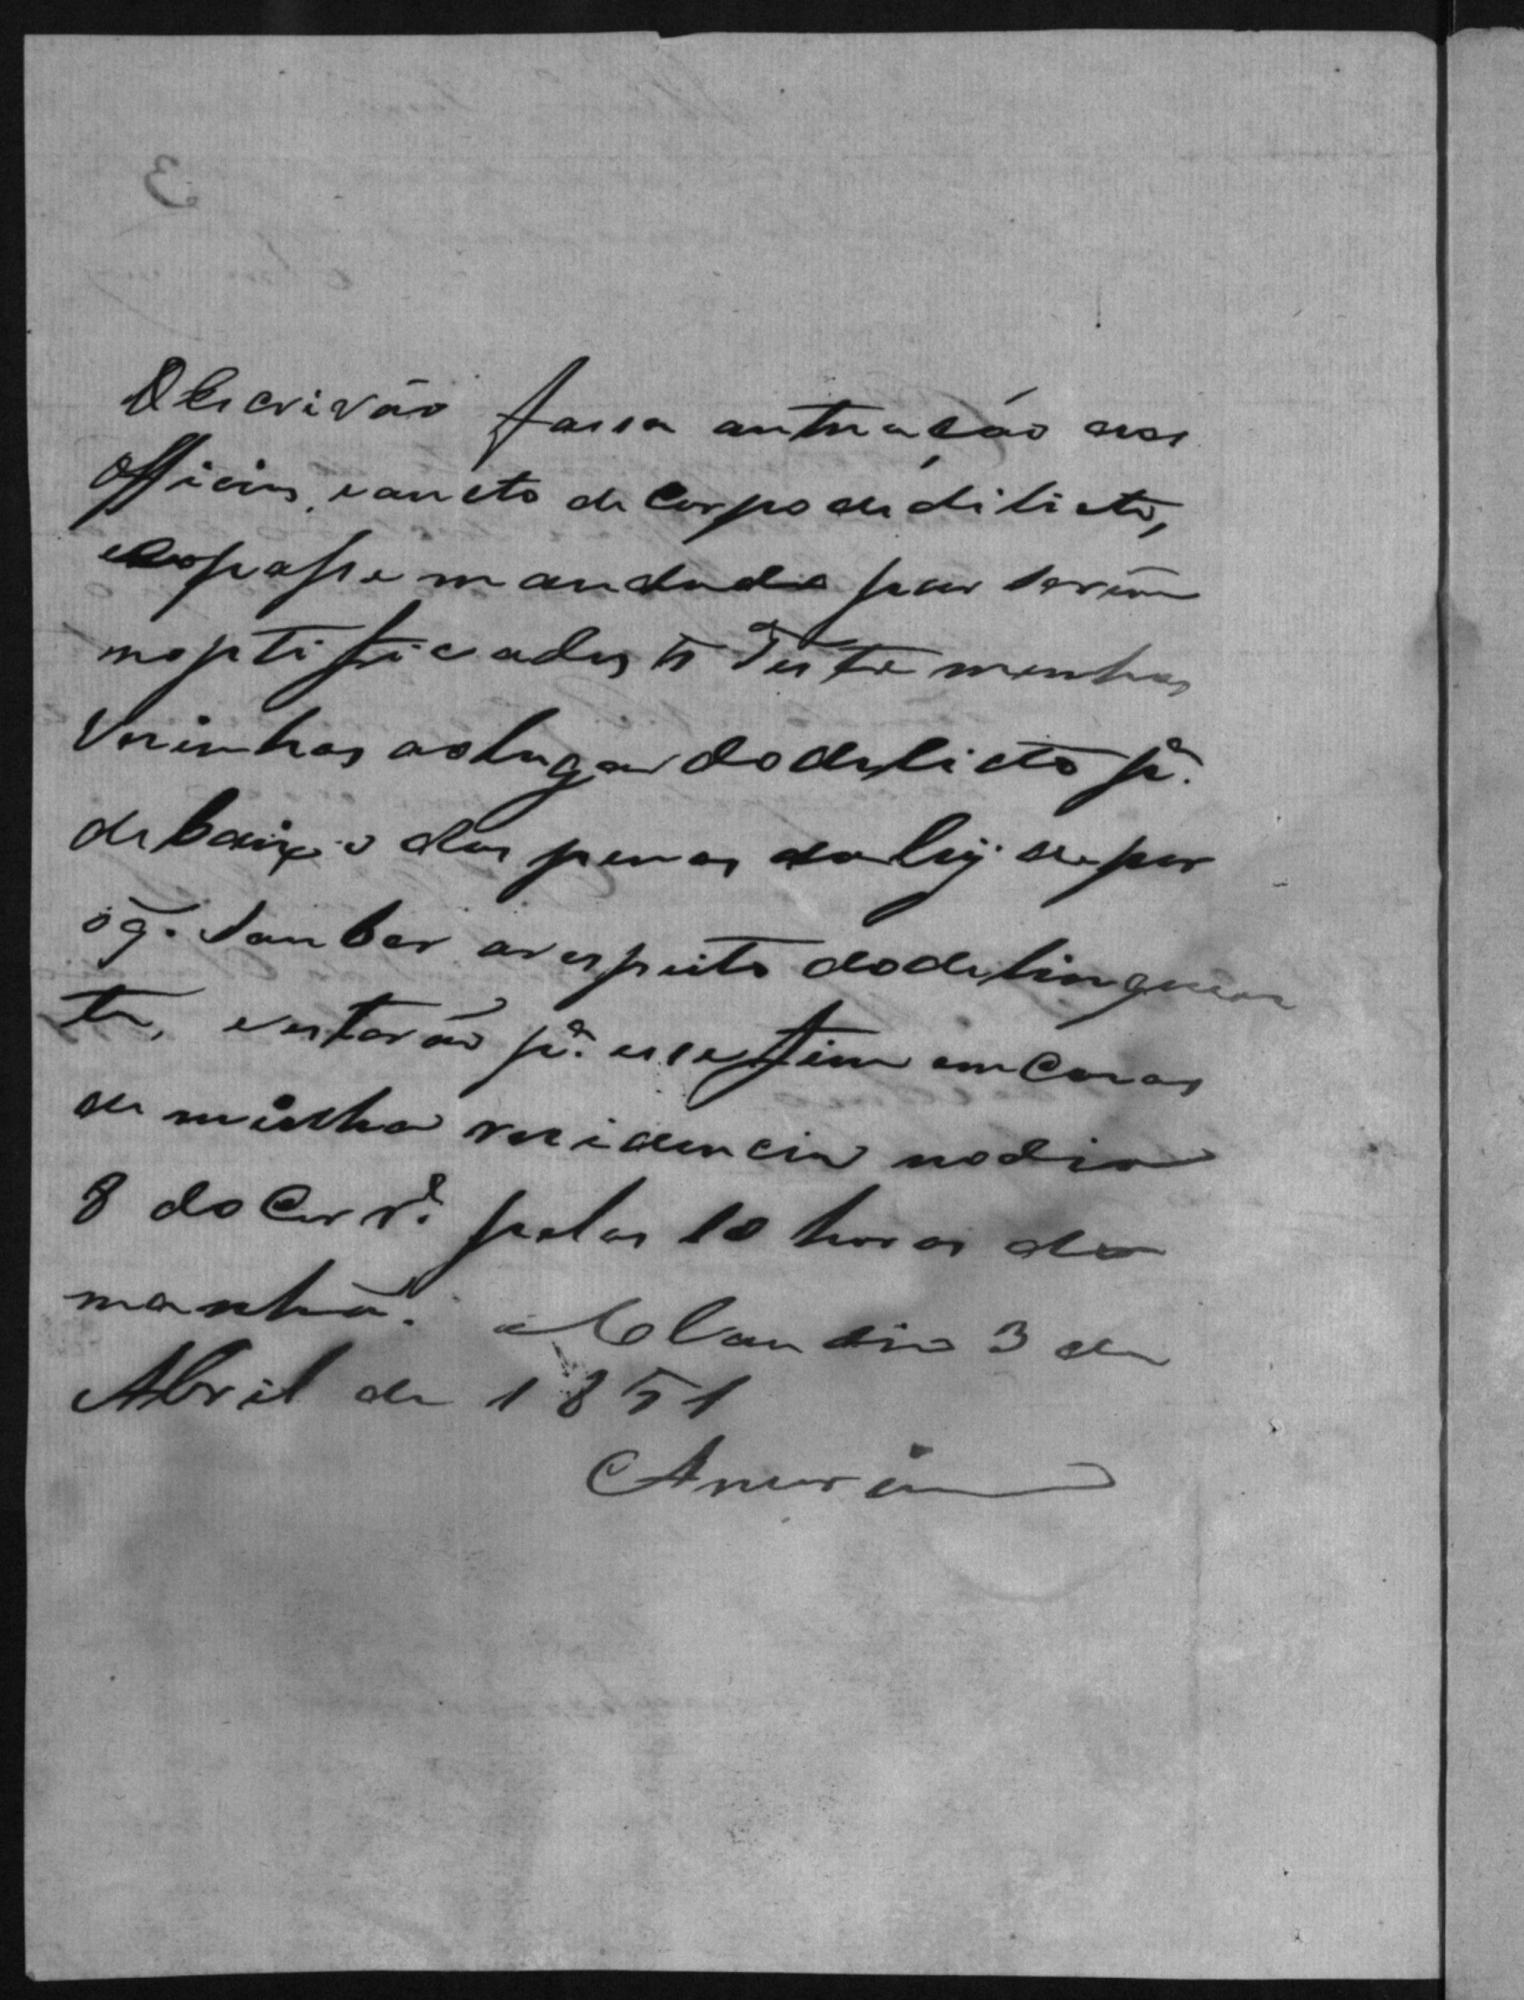 OEscrivão fassa autuação dos
Officios, e aucto de Corpo de dilicto,
e passe mandado para serem
noptificadas 5 Testemunhas
Vesinhas ao lugar do delicto pª.
debaixo das penas da lei depor
o q̃. Souber a respeito do delinquen
te, e estarão pª. esse fim em Casas
de minha residencia no dia
8 do Corrᵉ. pelas 10 horas da
manhã. Claudio 3 de
Abril de 1851
Amorim